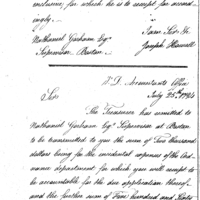 enclosure, for which he is to accept for accord-
ingly.
I am Sir &c.
Nathaniel Gorham Esqr. Joseph Howell
Supervisor Boston
W.D. Accountants Office
July 25th 1794
Sir
The Treasurer has remitted to
Nathaniel Gorham Esqr. Supervisor at Boston
to be transmitted to you the sum of Two thousand
dollars being for the incidental expenses of the Ord-
nance department for which you will accept to
be accountable for the due application thereof
and the further sum of Five hundred and